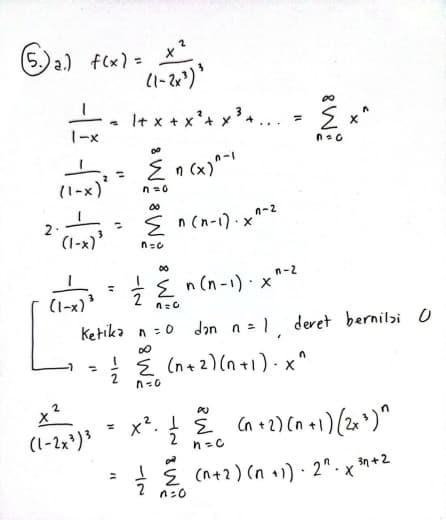 5.) a.) f(x) = x² / (1-2x³)³
1/(1-x) = 1 + x + x² + x³ + ... = ∑_{n=0}^{∞} xⁿ
1/(1-x)² = ∑_{n=0}^{∞} n(x)^{n-1}
2 · 1/(1-x)³ = ∑_{n=0}^{∞} n(n-1) · x^{n-2}
1/(1-x)³ = 1/2 ∑_{n=0}^{∞} n(n-1) · x^{n-2}
Ketika n = 0 dan n = 1, deret bernilai 0
→ = 1/2 ∑_{n=0}^{∞} (n+2)(n+1) · xⁿ
x²/(1-2x³)³ = x² · 1/2 ∑_{n=0}^{∞} (n+2)(n+1)(2x³)ⁿ
= 1/2 ∑_{n=0}^{∞} (n+2)(n+1) · 2ⁿ · x^{3n+2}